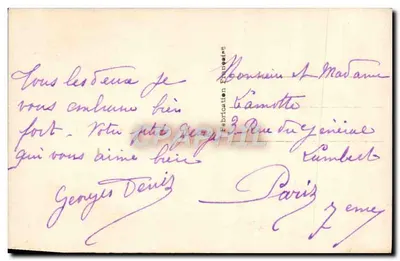 Tous les deux je
vous embrasse bien
fort. Votre petit Georges
qui vous aime bien
Georges Deniz
Fabrication Française
Monsieur et Madame
Lamotte
3 Rue du Général
Lambert
Paris
7eme